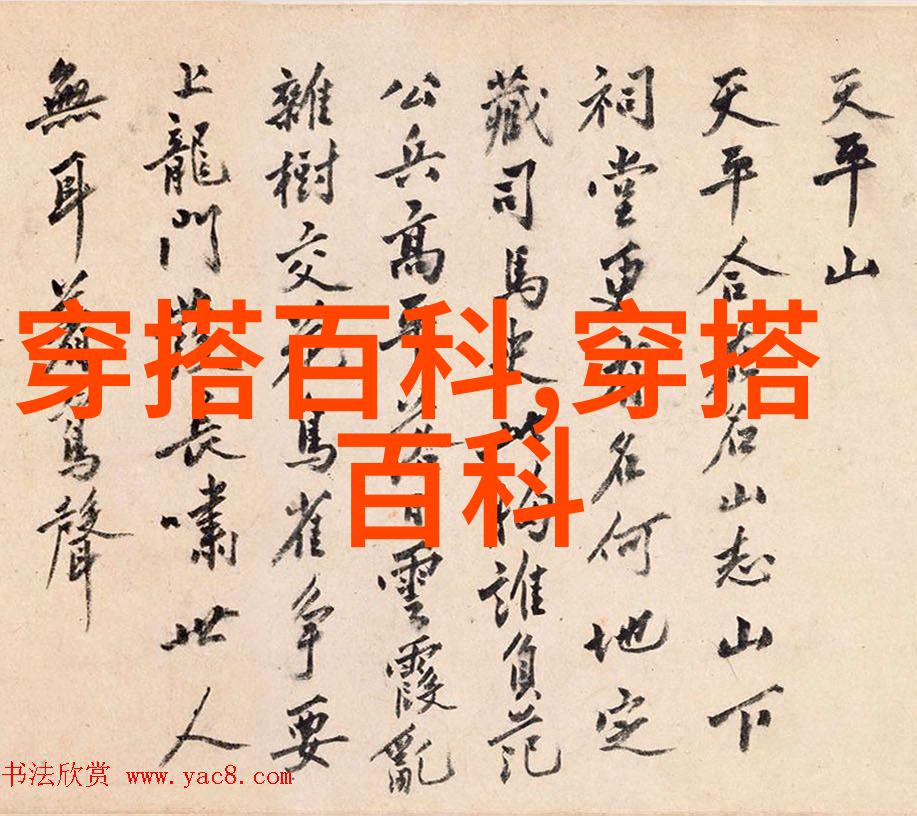 天平山
天平合名山志山下
祠堂更名何地定
藏司馬史此誰負范
公兵高平雲霞亂
雜樹交花鳥雀爭要
上龍門長嘯世人
無耳聲
穿搭百科,穿搭
百科
书法欣赏 www.yac8.com